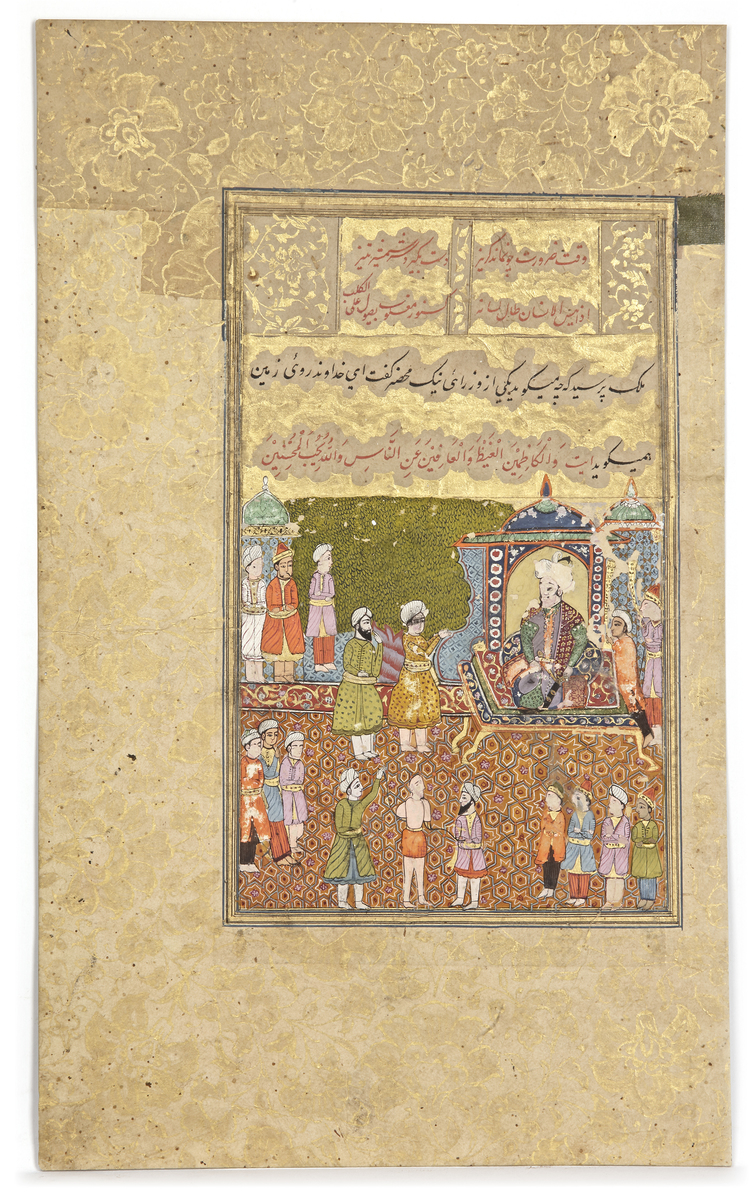 وقت ضرورت چو نماند گریز دست بگیرد سر شمشیر تیز
اذا یئس الانسان طال لسانه کسنور مغلوب یصول علی الکلب
ملک پرسید که چه میگوید یکی از وزرائ نیک محضر گفت ای خداوند روئ زمین
همیگوید ایت وَالْكَاظِمِينَ الْغَيْظَ وَالْعَافِينَ عَنِ النَّاسِ وَاللَّهُ يُحِبُّ الْمُحْسِنِينَ